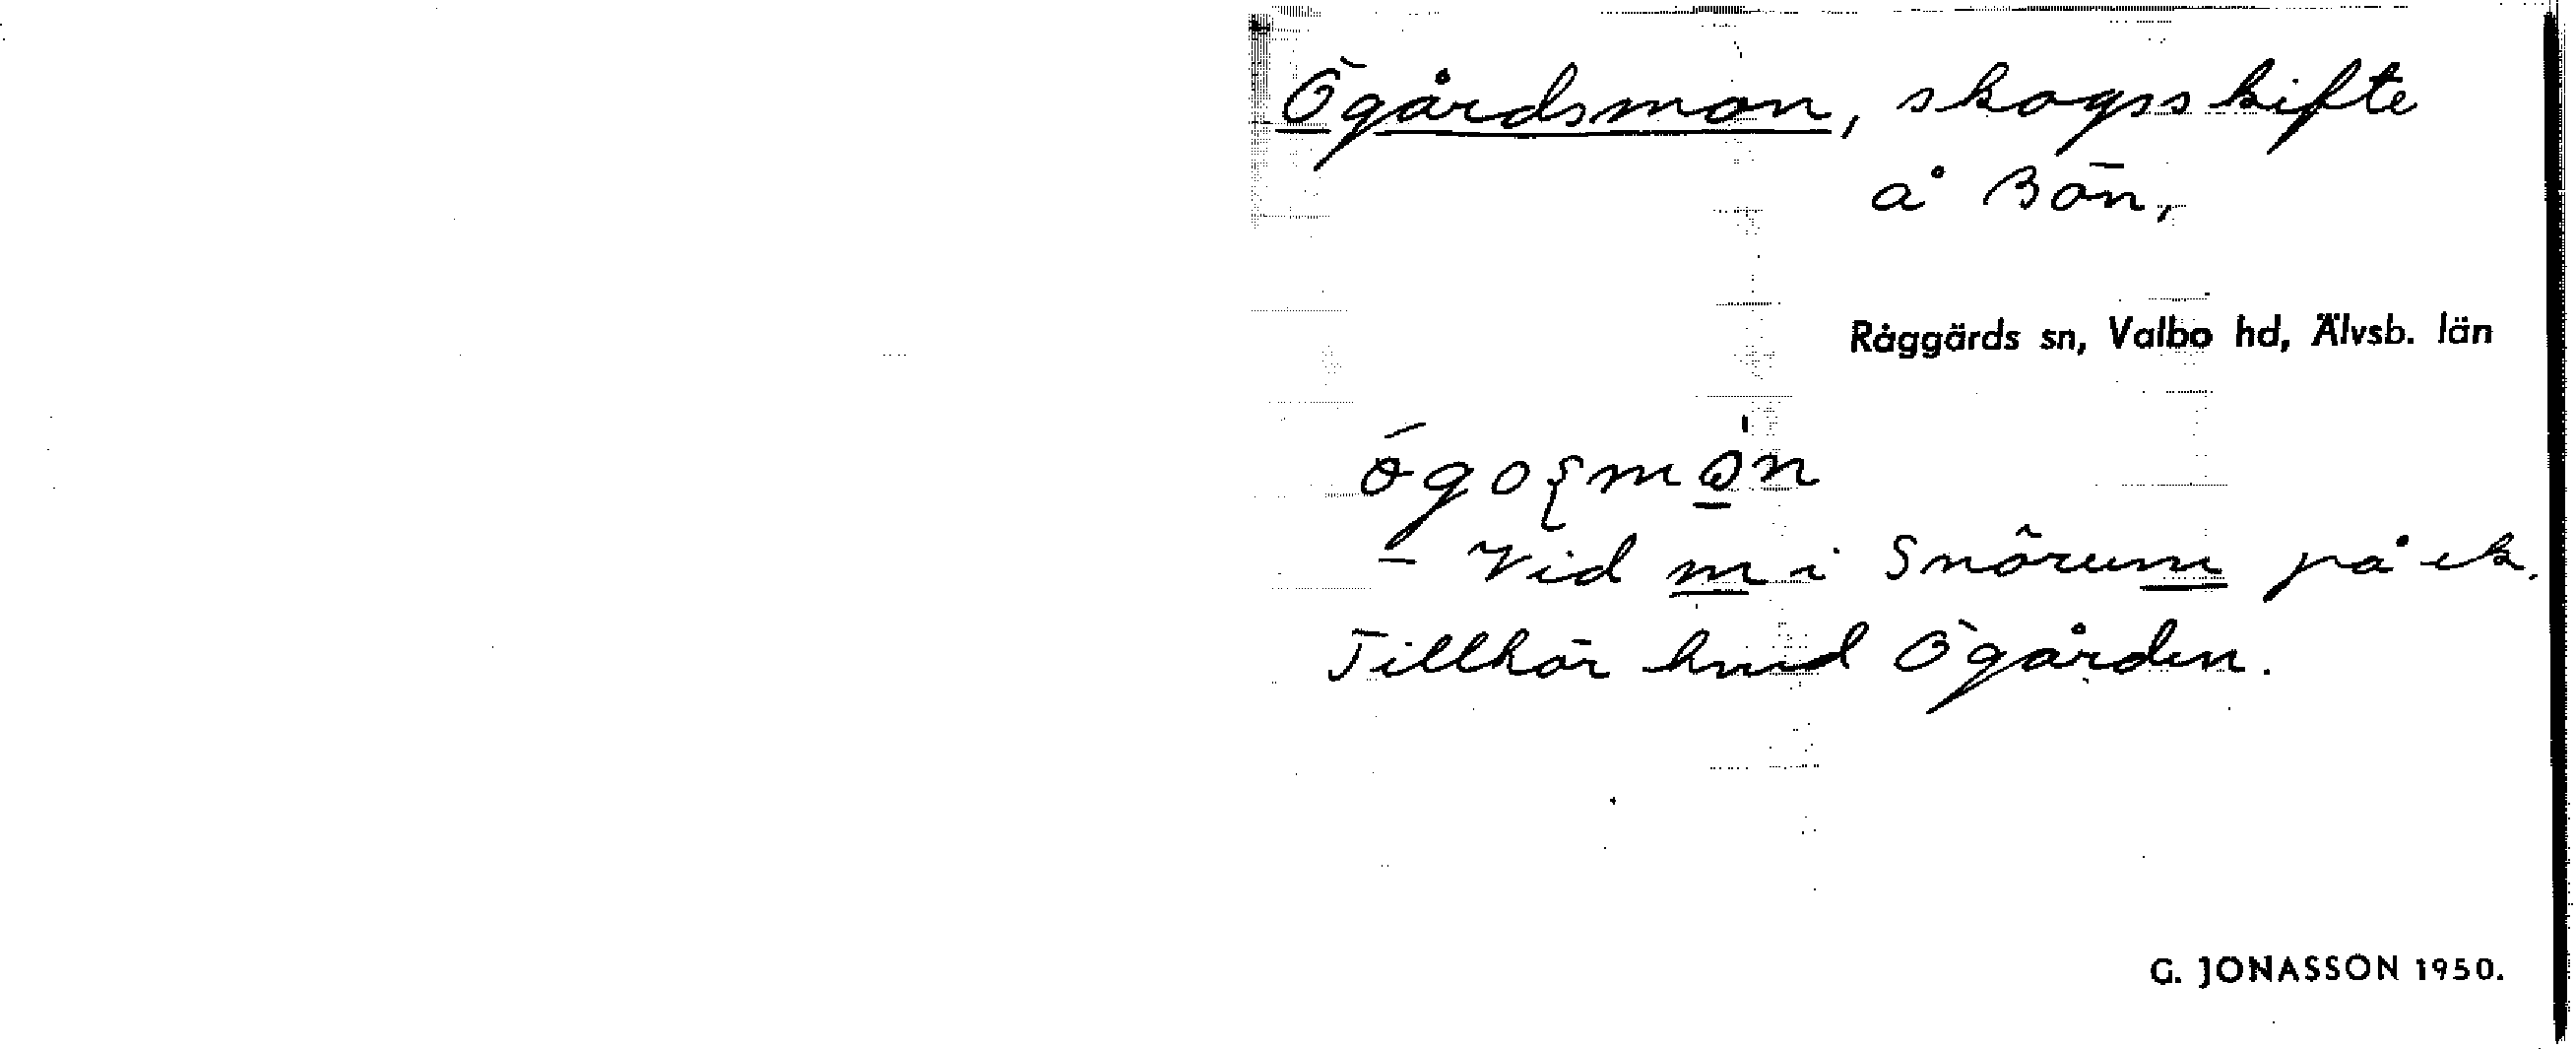 Ögårdsmon, skogsskifte
å Bön,
Råggärds sn, Valbo hd, Älvsb. län
– Vid m i Snörum på ek.
Tillhör hmd Ögården.
G. JONASSON 1950.